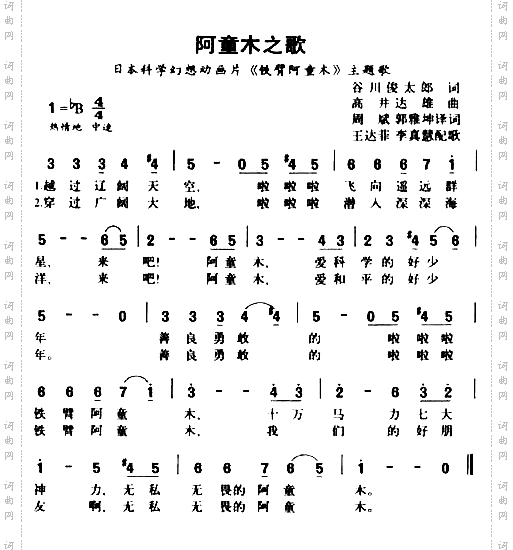 阿童木之歌
日本科学幻想动画片《铁臂阿童木》主题歌
谷川俊太郎 词
1=♭B 4/4 高井达雄 曲
热情地 中速 周斌 郭雅坤译词
王达菲 李真慧配歌
3 3 3 4 #4 | 5 - 0 5 #4 5 | 6 6 6 6 7 1 |
1.越过辽阔天空, 啦啦啦 飞向遥远群
2.穿过广阔大地, 啦啦啦 潜入深深海
5 - - 6 5 | 2 - - 6 5 | 3 - 4 3 | 2 3 #4 5 6 |
星, 来吧! 阿童木, 爱科学的好少
洋, 来吧! 阿童木, 爱和平的好少
5 - - 0 | 3 3 3 4 #4 | 5 - - 0 | 5 #4 5 |
年 善良勇敢 的 啦啦啦
年。 善良勇敢 的 啦啦啦
6 6 6 7 1 | 3 - - 4 3 | 2 - 2 - | 6 - 3 2 |
铁臂阿童木, 十万马力七大
铁臂阿童木, 我们的好朋
1 - 5 - | #4 - 4 5 | 6 6 6 7 6 5 | 1 - - 0 ‖
神力,无私无畏的阿童木。
友啊,无私无畏的阿童木。
词曲网
词曲网
词曲网
词曲网
词曲网
词曲网
词曲网
词曲网